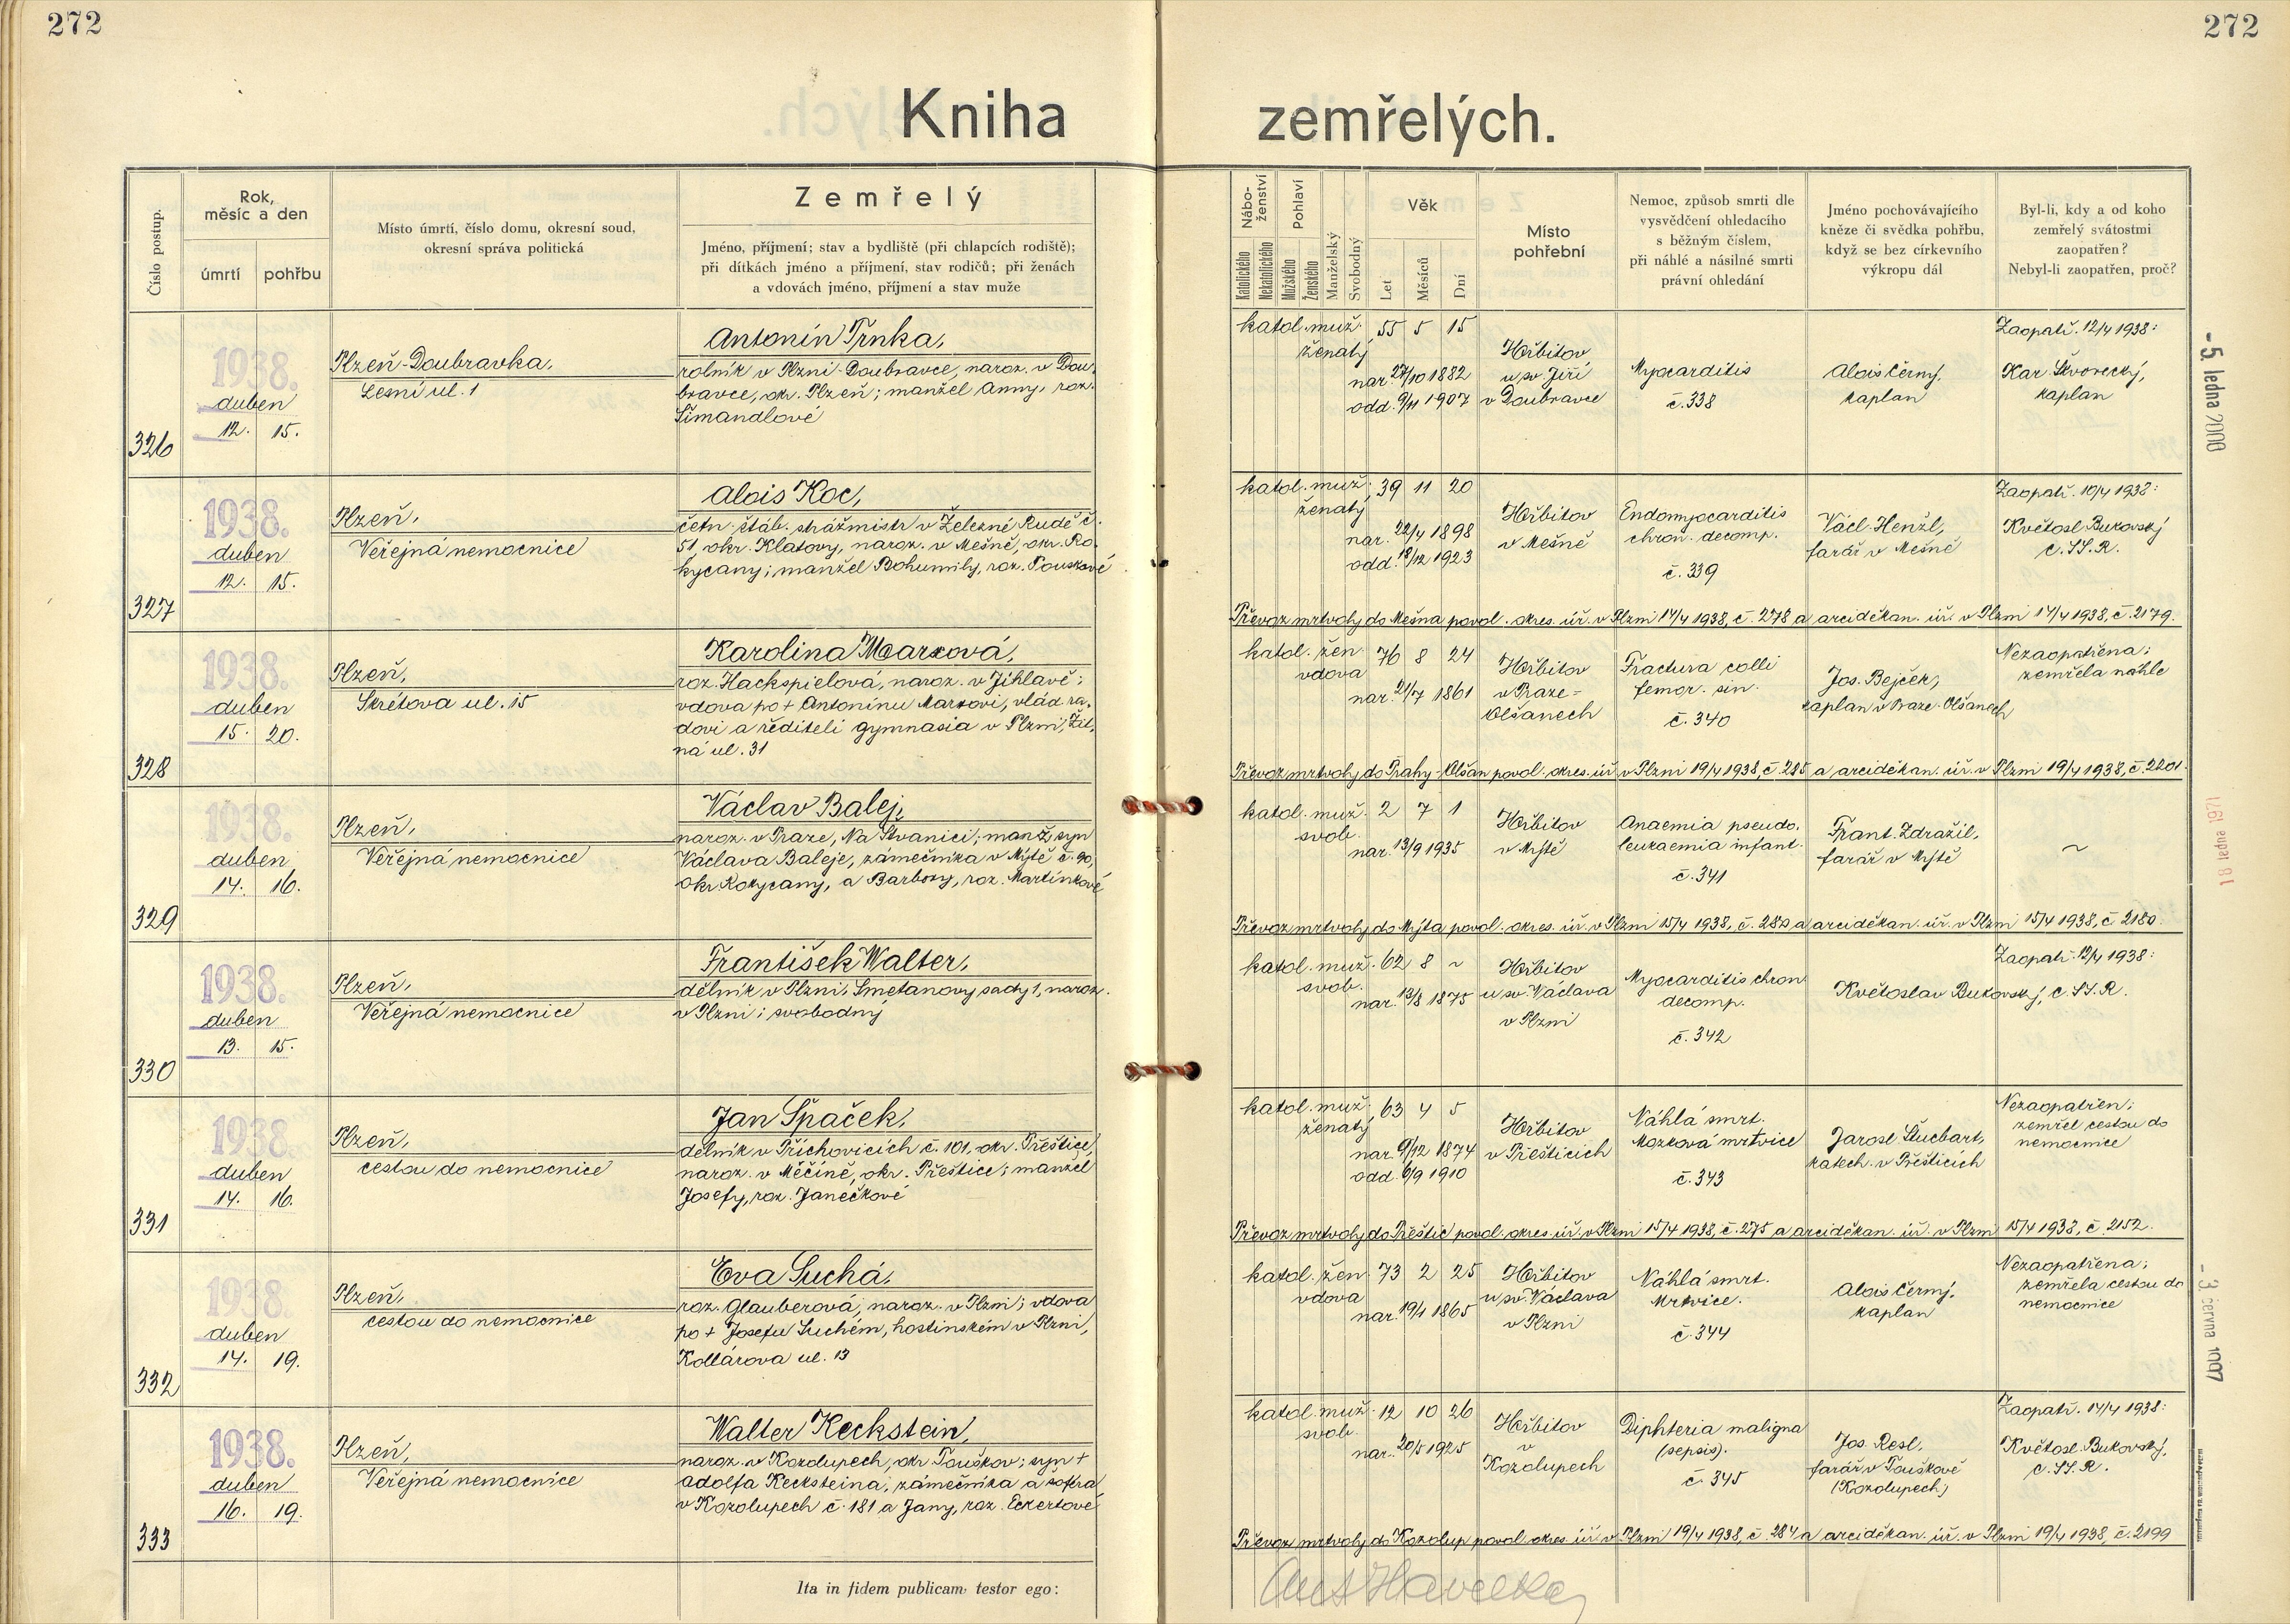 272
272
Kniha zemřelých.
Číslo postup.
Rok, měsíc a den
úmrtí
pohřbu
Místo úmrtí, číslo domu, okresní soud,
okresní správa politická
Zemřelý
Jméno, příjmení; stav a bydliště (při chlapcích rodiště);
při dítkách jméno a příjmení, stav rodičů; při ženách
a vdovách jméno, příjmení a stav muže
Nábo-
ženství
Katolického
Nekatolického
Pohlaví
Mužského
Ženského
Manželský
Svobodný
Věk
Let
Měsíců
Dní
Místo
pohřební
Nemoc, způsob smrti dle
vysvědčení ohledacího
s běžným číslem,
při náhlé a násilné smrti
právní ohledání
Jméno pochovávajícího
kněze či svědka pohřbu,
když se bez církevního
výkropu dál
Byl-li, kdy a od koho
zemřelý svátostmi
zaopatřen?
Nebyl-li zaopatřen, proč?
326
1938.
duben
12. 15.
Plzeň-Doubravka,
Lesní ul. 1
Antonín Trnka,
rolník v Plzni-Doubravce, naroz. v Dou-
bravce, okr. Plzeň; manžel Anny, roz.
Šimandlové
katol. muž. 55 5 15
ženatý
nar. 27/10 1882
odd. 9/11 1907
Hřbitov
u sv Jiří
v Doubravce
Myocarditis
č. 338
Alois Černý,
kaplan
Zaopatř. 12/4 1938:
Kar. Škvorecký,
kaplan
327
1938.
duben
12. 15.
Plzeň,
Veřejná nemocnice
Alois Koc,
četn. štáb. strážmistr v Železné Rudě č.
51, okr. Klatovy, naroz. v Mešně, okr. Ro-
kycany; manžel Bohumily, roz. Pouskové
katol. muž. 39 11 20
ženatý
nar. 22/4 1898
odd. 18/12 1923
Hřbitov
v Mešně
Endomyocarditis
chron. decomp.
č. 339
Václ. Henžl,
farář v Mešně
Zaopatř. 10/4 1938:
Květosl. Bukovský
C.SS.R.
Převoz mrtvoly do Mešna povol. okres. úř. v Plzni 14/4 1938, č. 278 a arciděkan. úř. v Plzni 14/4 1938, č. 2179.
328
1938.
duben
15. 20.
Plzeň,
Skrétova ul. 15
Karolina Marxová,
roz. Hackspielová, naroz. v Jihlavě;
vdova po + Antonínu Marxovi, vlád. ra-
dovi a řediteli gymnasia v Plzni, Žit-
ná ul. 31
katol. žen. 76 8 24
vdova
nar. 21/7 1861
Hřbitov
v Praze-
Olšanech
Fractura colli
femor. sin.
č. 340
Jos. Bejček,
kaplan v Praze-Olšanech
Nezaopatřena;
zemřela náhle
Převoz mrtvoly do Prahy-Olšan povol. okres. úř. v Plzni 19/4 1938, č. 285 a arciděkan. úř. v Plzni 19/4 1938, č. 2201.
329
1938.
duben
14. 16.
Plzeň,
Veřejná nemocnice
Václav Balej,
naroz. v Praze, Na Štvanici; manž. syn
Václava Baleje, zámečníka v Mýtě č. 90,
okr Rokycany, a Barbory, roz. Martínkové
katol. muž. 2 7 1
svob.
nar. 13/9 1935
Hřbitov
v Mýtě
Anaemia pseudo-
leukaemia infant.
č. 341
Frant. Zdražil,
farář v Mýtě
~
Převoz mrtvoly do Mýta povol. okres. úř. v Plzni 15/4 1938, č. 280 a arciděkan. úř. v Plzni 15/4 1938, č. 2180.
330
1938.
duben
13. 15.
Plzeň,
Veřejná nemocnice
František Walter,
dělník v Plzni, Smetanovy sady 1, naroz.
v Plzni; svobodný
katol. muž. 62 8 ~
svob.
nar. 13/8 1875
Hřbitov
u sv. Václava
v Plzni
Myocarditis chron
decomp.
č. 342
Květoslav Bukovský, C.SS.R.
Zaopatř. 12/4 1938:
331
1938.
duben
14. 16.
Plzeň,
cestou do nemocnice
Jan Špaček,
dělník v Příchovicích č. 101, okr. Přeštice,
naroz. v Měčíně, okr. Přeštice; manžel
Josefy, roz. Janečkové
katol. muž. 63 4 5
ženatý
nar. 9/12 1874
odd. 6/9 1910
Hřbitov
v Přešticích
Náhlá smrt.
Mozková mrtvice
č. 343
Jarosl. Stuchart,
katech. v Přešticích
Nezaopatřen;
zemřel cestou do
nemocnice
Převoz mrtvoly do Přeštic povol. okres. úř. v Plzni 15/4 1938, č. 275 a arciděkan. úř. v Plzni 15/4 1938, č. 2152.
332
1938.
duben
14. 19.
Plzeň,
cestou do nemocnice
Eva Suchá,
roz. Glauberová, naroz. v Plzni; vdova
po + Josefu Suchém, hostinském v Plzni,
Kollárova ul. 13
katol. žen. 73 2 25
vdova
nar. 19/1 1865
Hřbitov
u sv. Václava
v Plzni
Náhlá smrt.
Mrtvice.
č. 344
Alois Černý,
kaplan
Nezaopatřena;
zemřela cestou do
nemocnice
333
1938.
duben
16. 19.
Plzeň,
Veřejná nemocnice
Walter Keckstein,
naroz. v Kozolupech, okr Touškov; syn +
Adolfa Kecksteina, zámečníka a šoféra
v Kozolupech č. 181 a Jany, roz. Eckertové
katol. muž. 12 10 26
svob.
nar. 20/5 1925
Hřbitov
v
Kozolupech
Diphteria maligna
(sepsis).
č. 345
Jos. Resl,
farář v Touškově
(Kozolupech)
Zaopatř. 14/4 1938:
Květosl. Bukovský,
C.SS.R.
Převoz mrtvoly do Kozolup povol. okres. úř. v Plzni 19/4 1938, č. 284 a arciděkan. úř. v Plzni 19/4 1938, č. 2199
Ita in fidem publicam testor ego:
Ant Havelka
- 5. ledna 2000
18 ledna 1971
- 3. června 1997